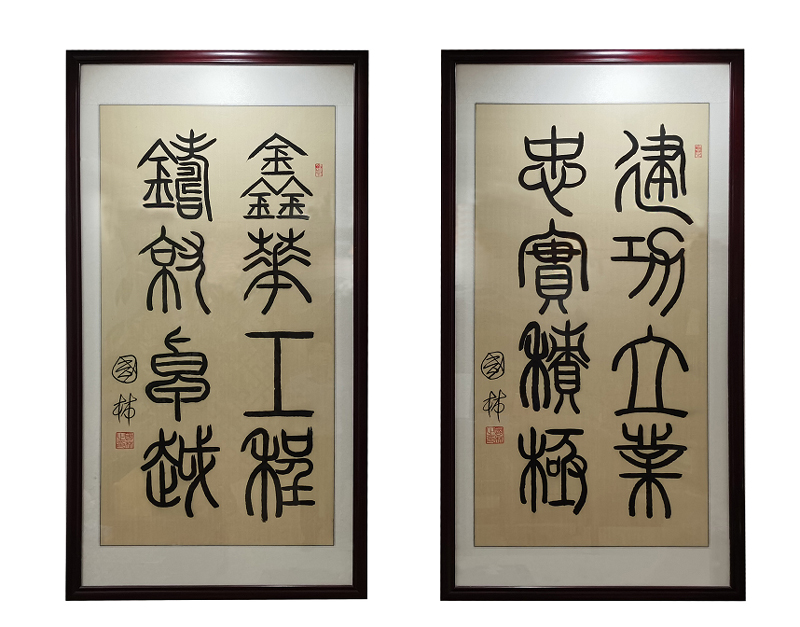 鑫華工程
鑄就卓越
國林
建功立業
忠實積極
國林